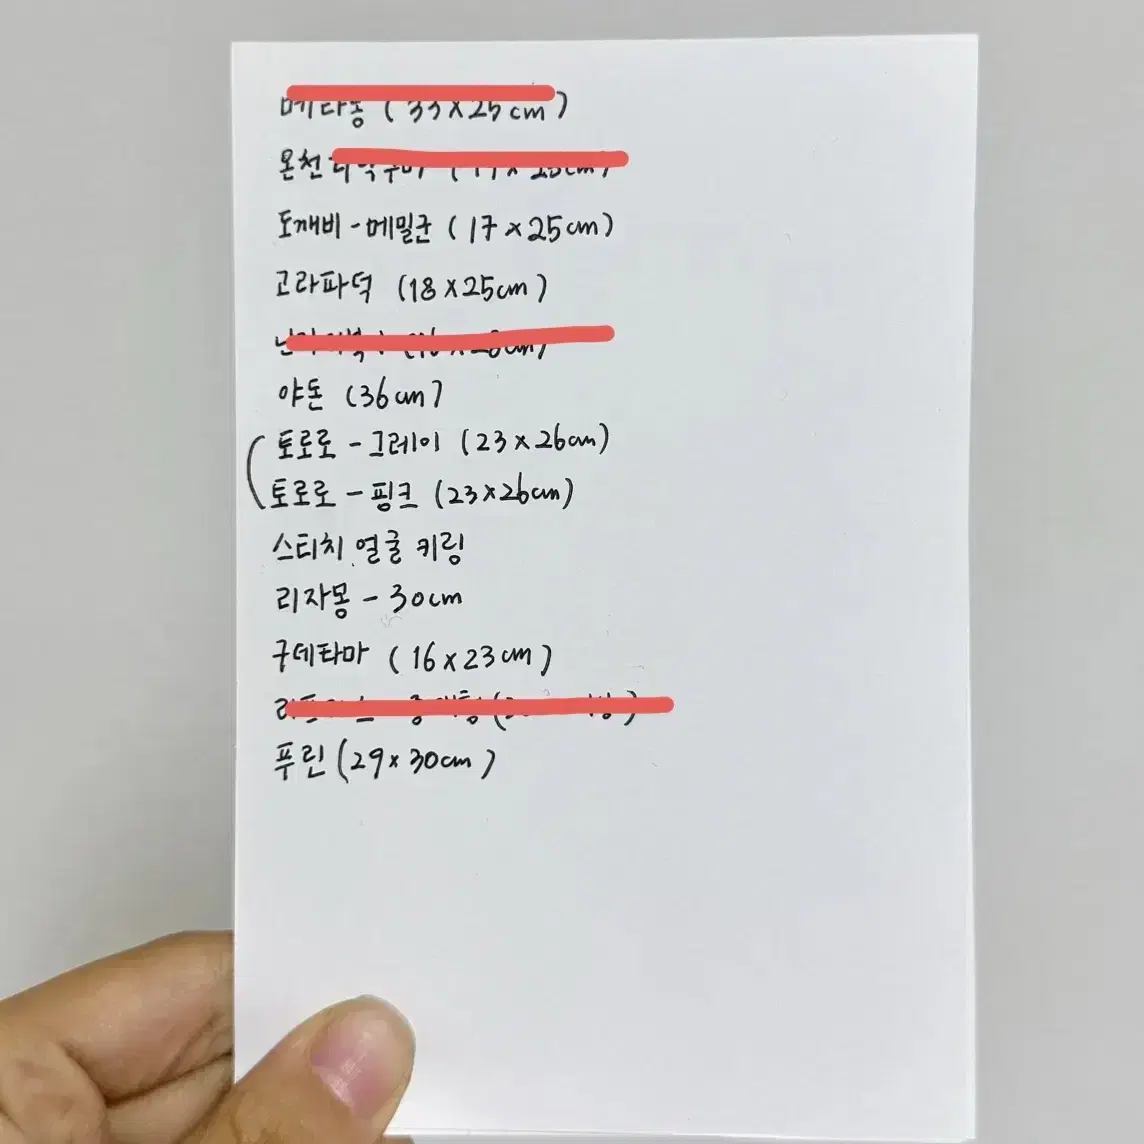 메타몽 (33x25cm)
온천
도깨비-메밀군 (17x25cm)
고라파덕 (18x25cm)
야돈 (36cm)
토로로-그레이 (23x26cm)
토로로-핑크 (23x26cm)
스티치 얼굴 키링
리자몽-30cm
구데타마 (16x23cm)
푸린 (29x30cm)